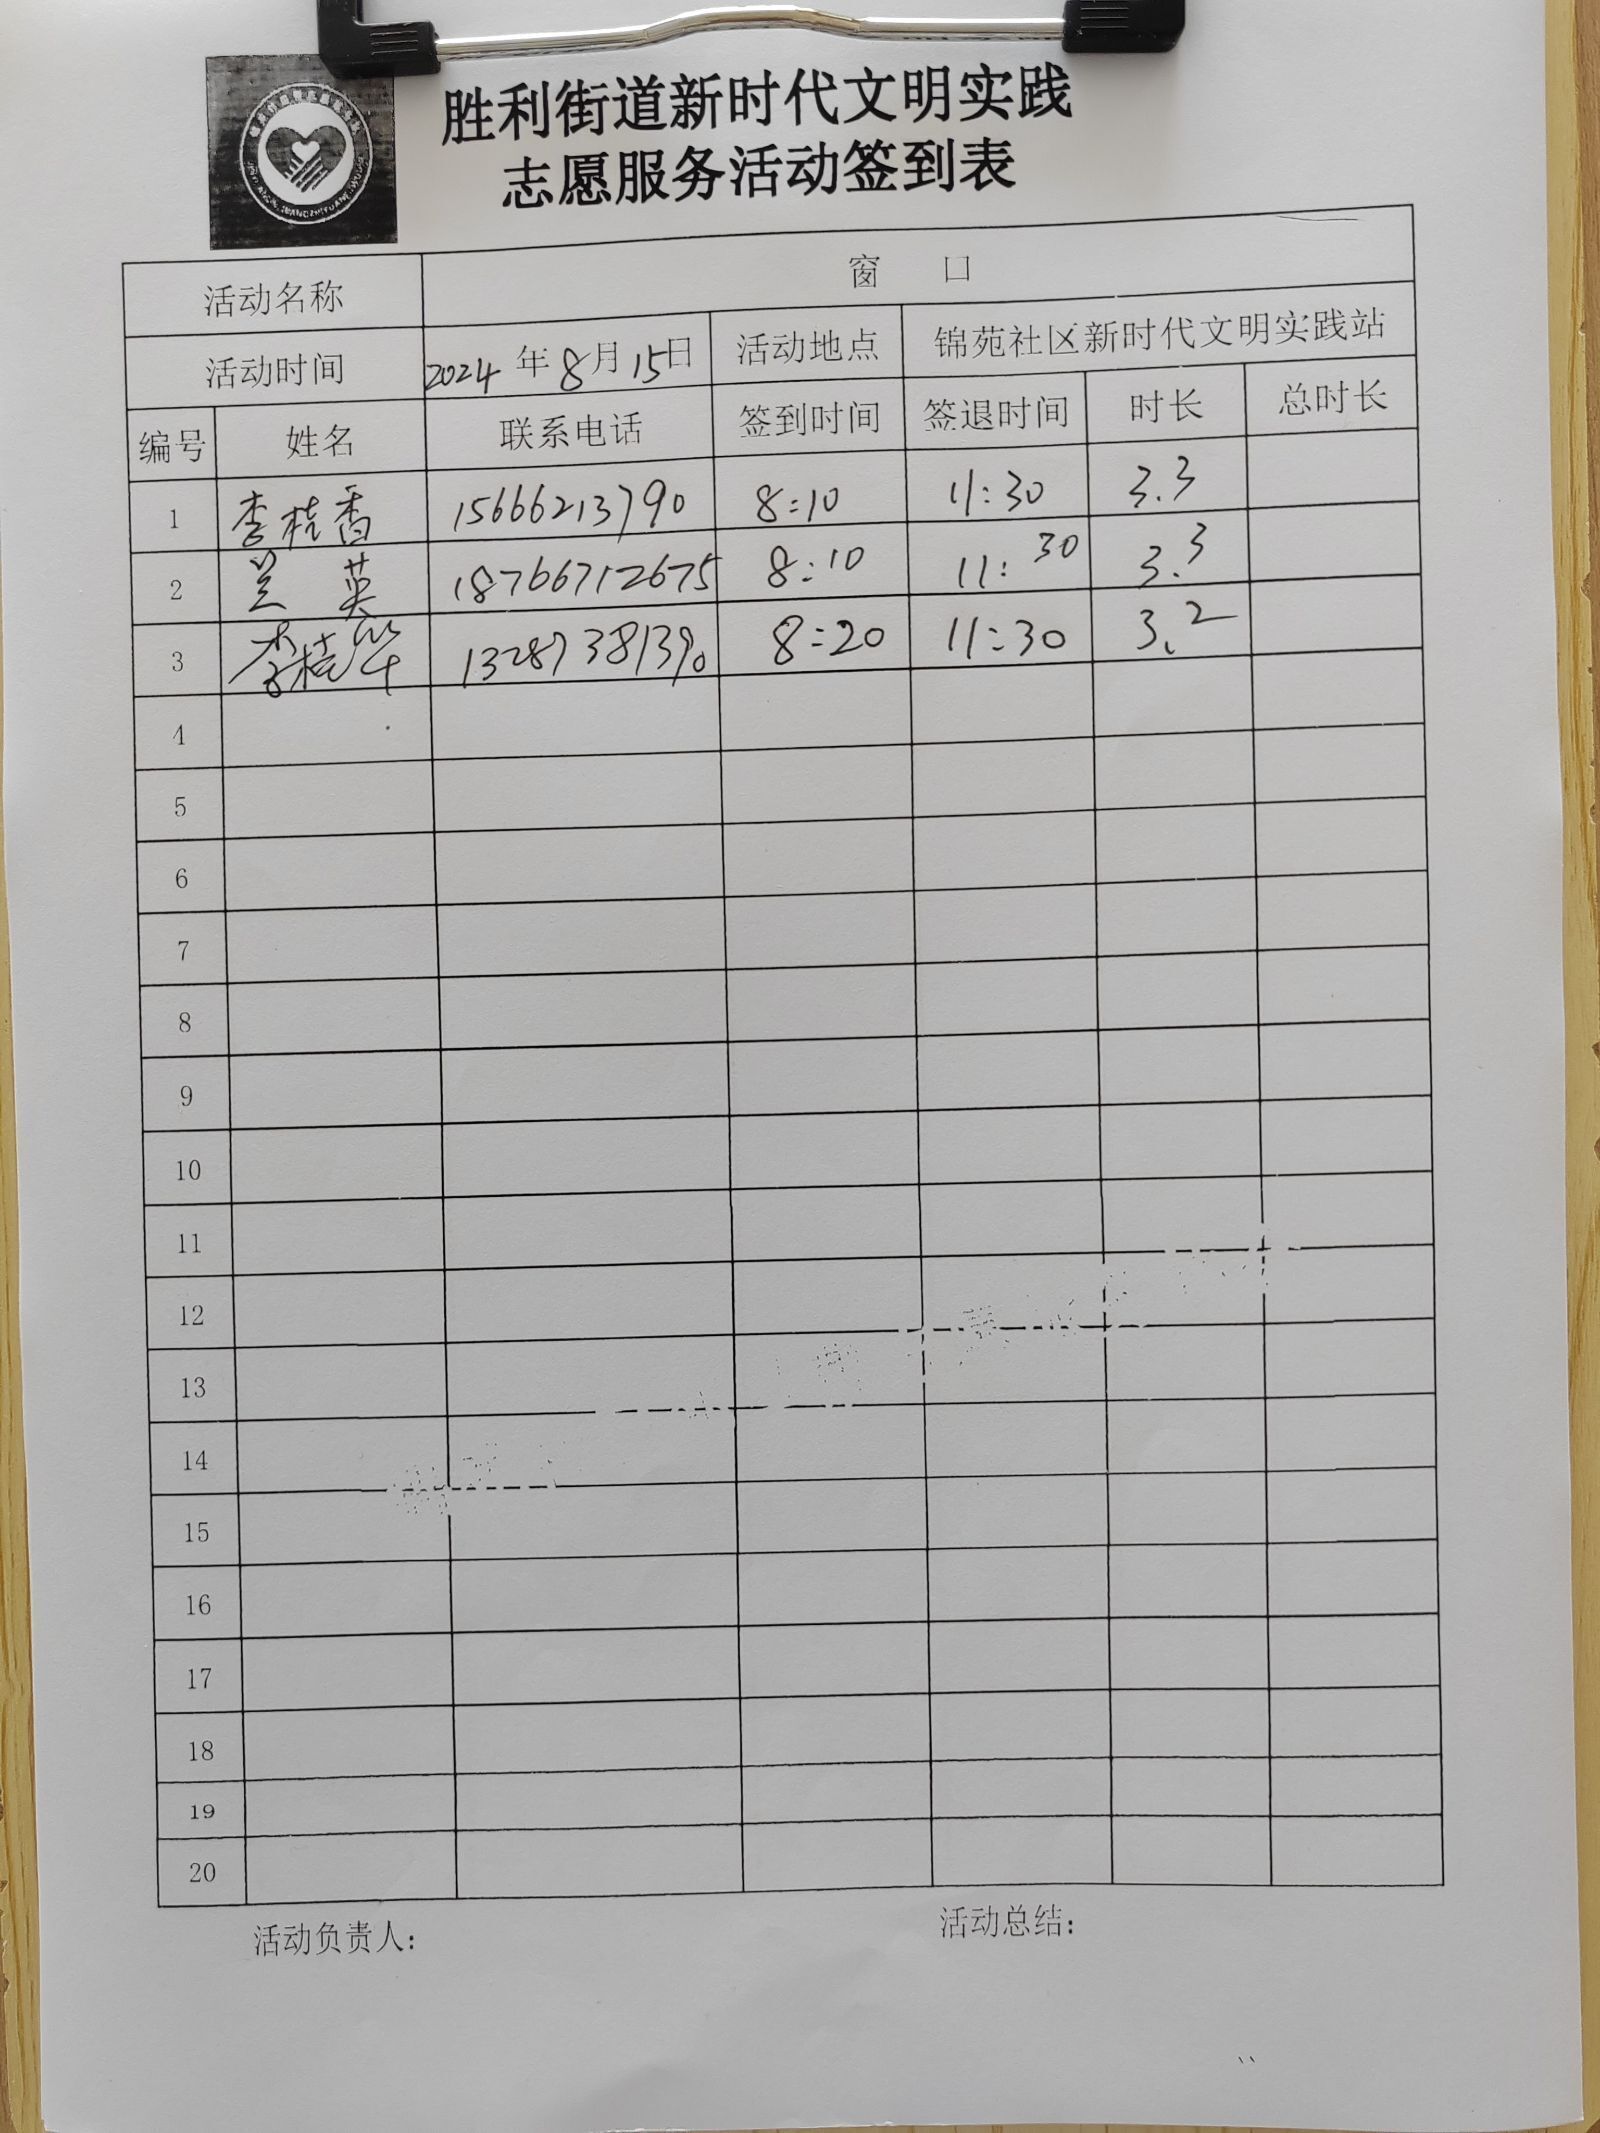 胜利街道新时代文明实践
志愿服务活动签到表
活动名称 窗 口
活动时间 2024 年 8 月 15 日 活动地点 锦苑社区新时代文明实践站
编号 姓名 联系电话 签到时间 签退时间 时长 总时长
1 李桂香 15666213790 8:10 11:30 3.3
2 兰 英 18766712675 8:10 11:30 3.3
3 李桂华 13287381390 8:20 11:30 3.2
4
5
6
7
8
9
10
11
12
13
14
15
16
17
18
19
20
活动负责人: 活动总结: